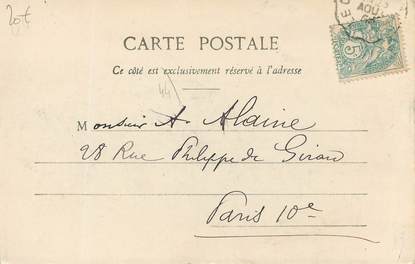 CARTE POSTALE
Ce côté est exclusivement réservé à l'adresse
44
Monsieur A. Alaine
28 Rue Philippe de Girard
Paris 10e
AOU
5